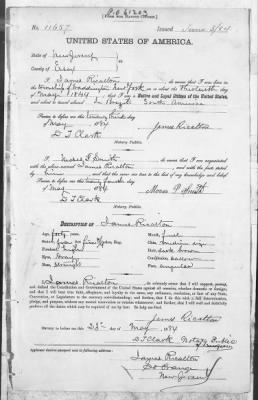 No 11657 Issued June 3/84
[FORM FOR NATIVE CITIZEN.]
UNITED STATES OF AMERICA.
State of New Jersey
County of Essex
I James Ricalton do swear that I was born in
the township of Waddington New York on the thirteenth day
of May 1844 Native and Loyal Citizen of the United States,
and about to travel abroad to Brazil South America
Sworn to before me this day
of May 1884 James Ricalton
D T Clark
Notary Public.
I Moses P Smith do swear that I am acquainted
with the above-named James Ricalton and with the facts stated
by him and that the same are true to the best of my knowledge and belief.
Sworn to before me this day
of May 1884 Moses P Smith
D T Clark
Notary Public.
DESCRIPTION OF James Ricalton
Age: forty years Mouth: full
Stature: five feet Eng. Chin:
Forehead: Hair: dark brown
Eyes: Complexion: sallow
Nose: straight Face: angular
I, James Ricalton do solemnly swear that I will support, protect,
and defend the Constitution and Government of the United States against all enemies, whether domestic or foreign;
and that I will bear true faith, allegiance, and loyalty to the same, any ordinance, resolution, or law of any State,
Convention, or Legislature to the contrary notwithstanding; and further, that I do this with a full determination,
pledge, and purpose, without any mental reservation or evasion whatsoever; and further, that I will well and faithfully
perform all the duties which may be required of me by law: So help me God.
James Ricalton
Sworn to before me this 23d day of May 1884
D T Clark Notary Public
of New Jersey
Applicant desires passport sent to following address:
James Ricalton
So Orange
New Jersey